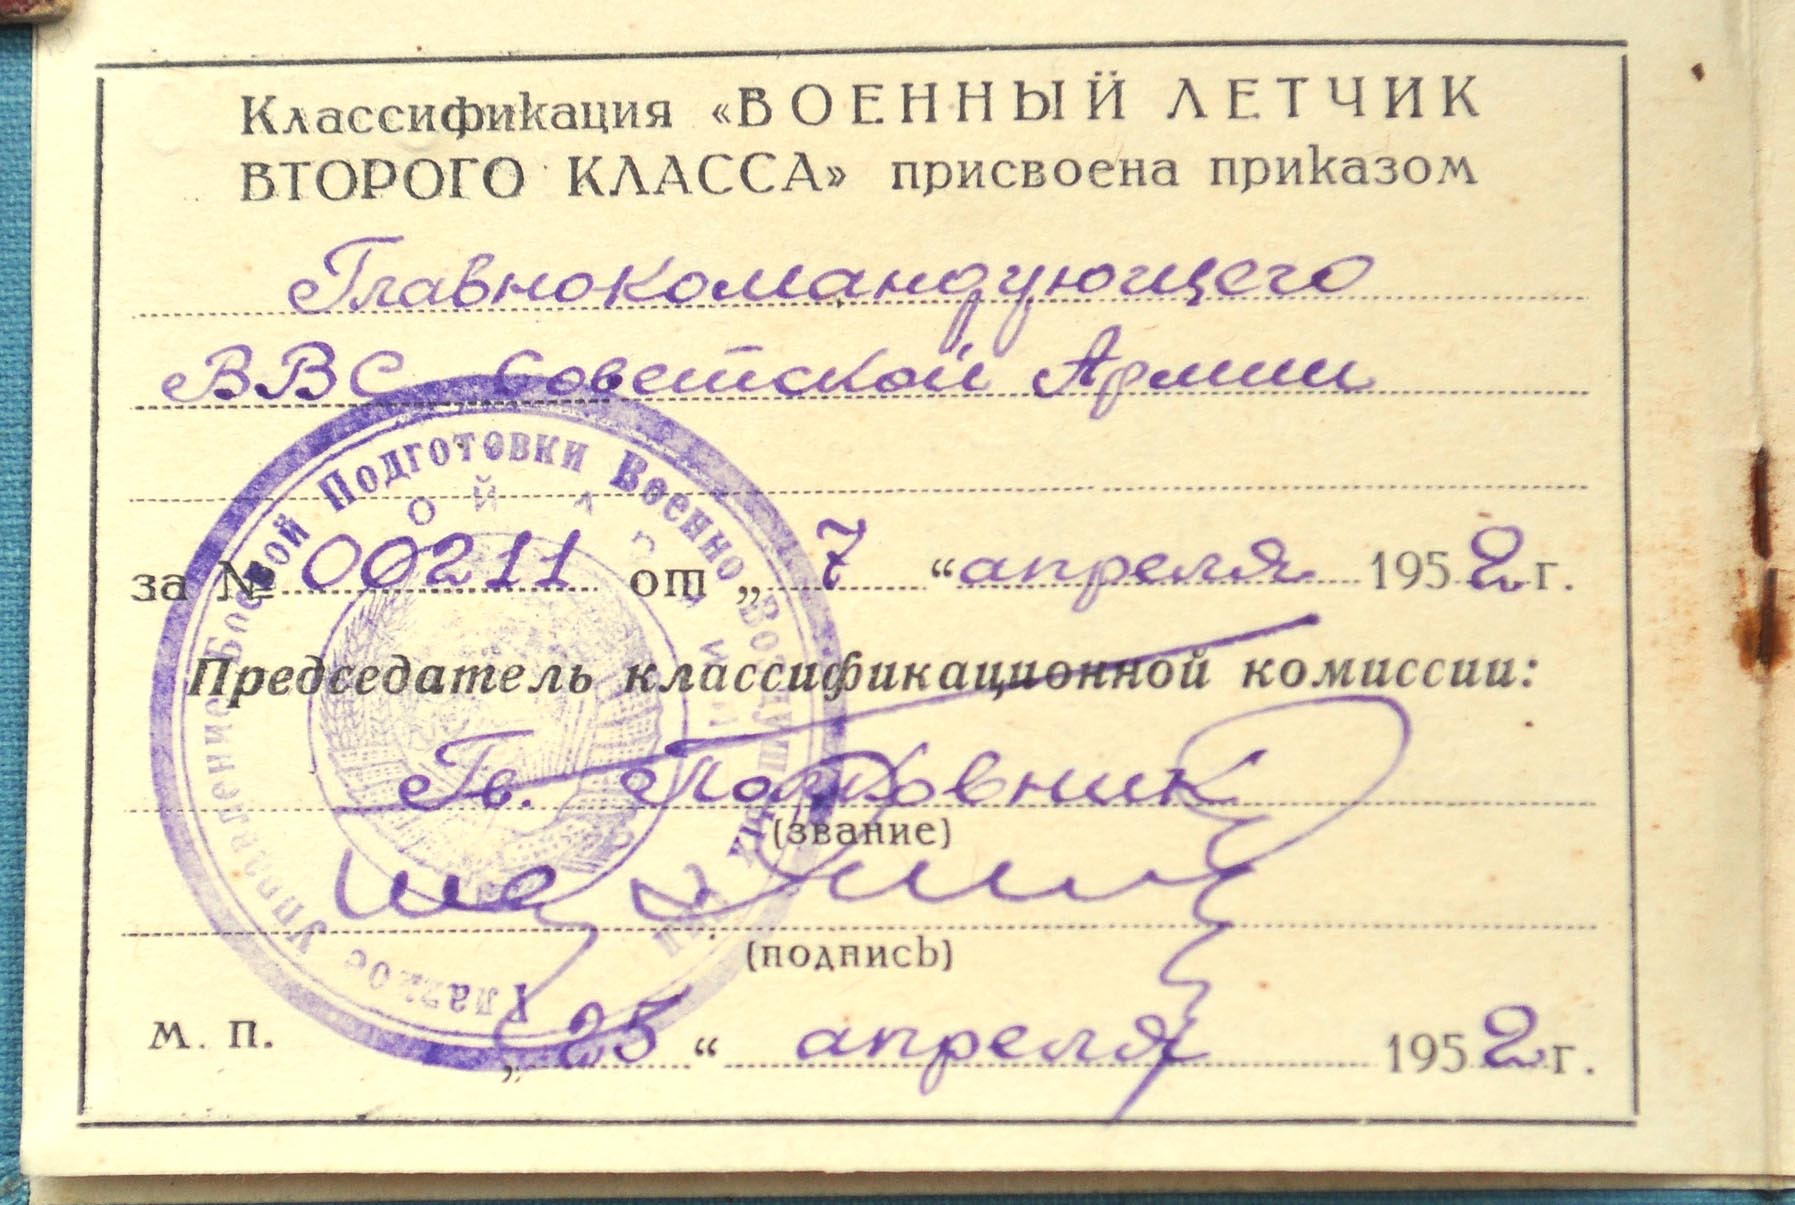 Классификация «ВОЕННЫЙ ЛЕТЧИК
ВТОРОГО КЛАССА» присвоена приказом
Главнокомандующего
ВВС Советской Армии
за № 00211 от „ 7 “ апреля 1952 г.
Председатель классификационной комиссии:
Гв. Полковник
(звание)
(подпись)
М. П.
„ 25 “ апреля 1952 г.
Главное Управление Боевой Подготовки Военно Воздушных Сил